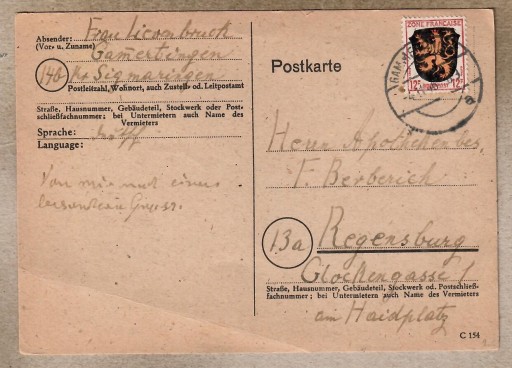 Absender:
(Vor- u. Zuname)
Frau
Gamertingen
14b Kr. Sigmaringen
Postleitzahl, Wohnort, auch Zustell- od. Leitpostamt
Straße, Hausnummer, Gebäudeteil, Stockwerk oder Post-
schließfachnummer; bei Untermietern auch Name des
Vermieters
Sprache:
Language:
Von mir noch einen
besonderen Gruss.
Postkarte
ZONE FRANÇAISE
12 12
Herrn Apothekenbes.
F. Berberich
13a
Regensburg
Glockengasse 1
Straße, Hausnummer, Gebäudeteil, Stockwerk od. Postschließ-
fachnummer; bei Untermietern auch Name des Vermieters
am Haidplatz
C 154